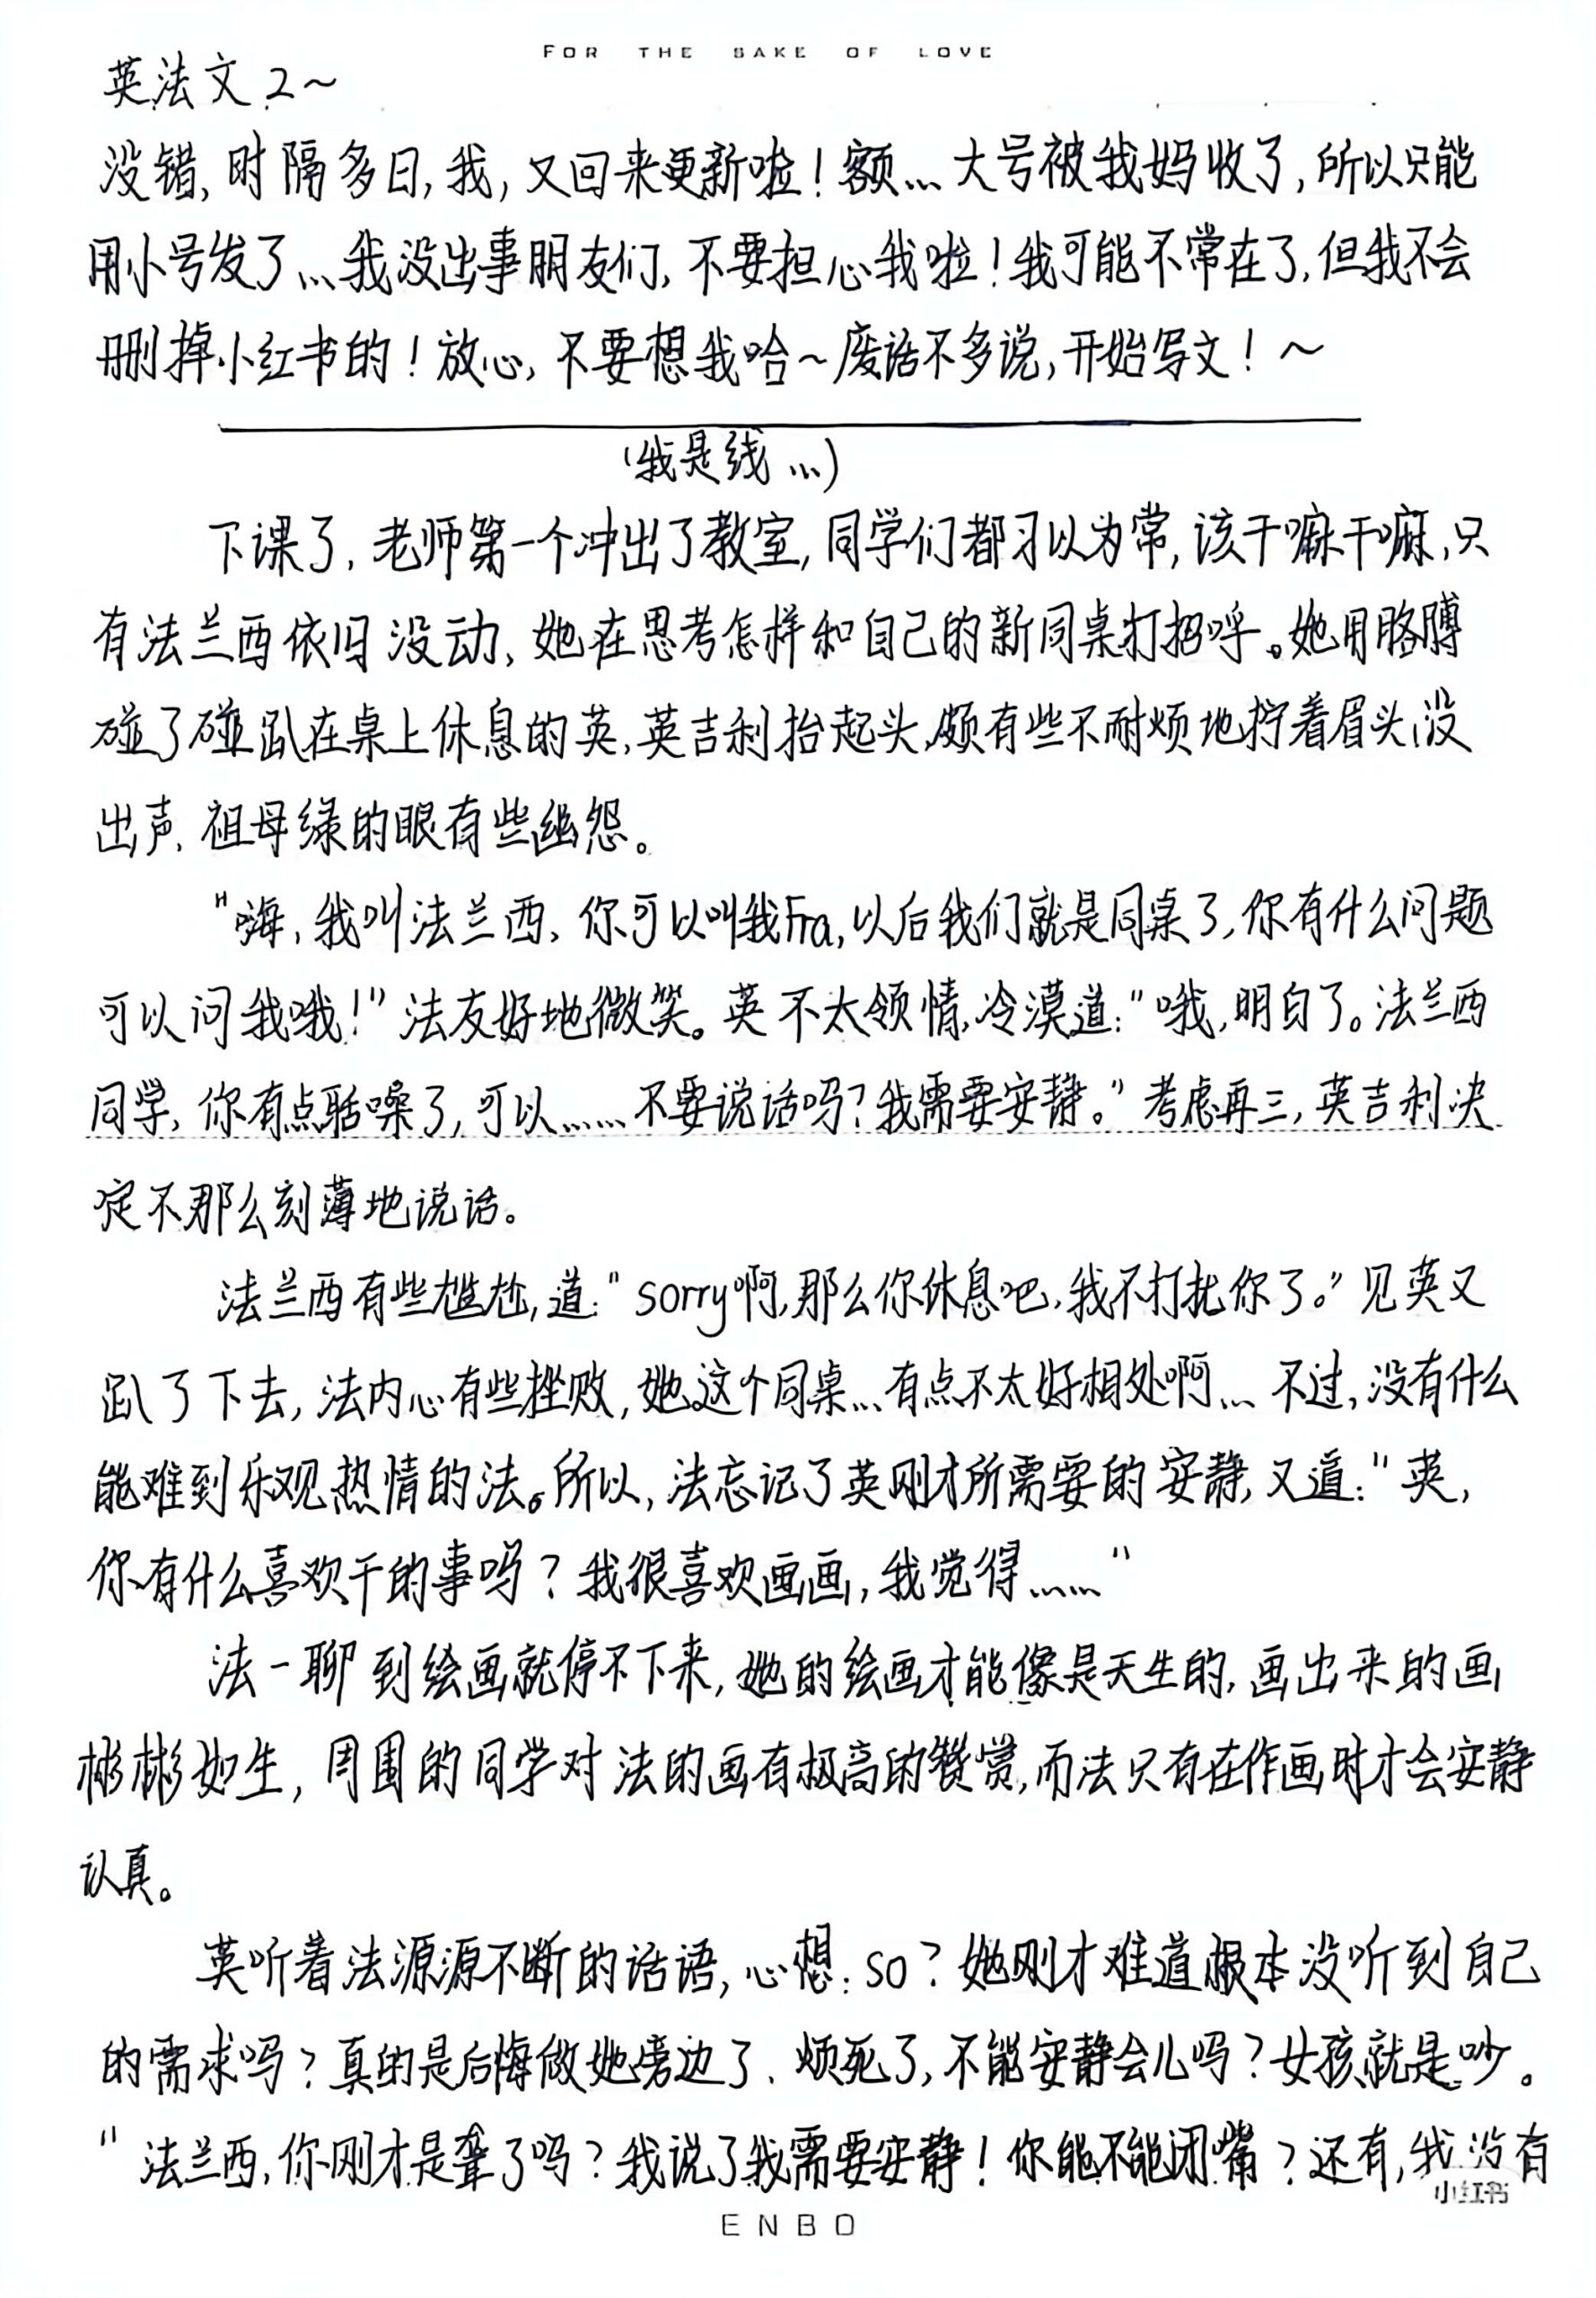 FOR THE SAKE OF LOVE
英法文2~
没错,时隔多日,我,又回来更新啦!额...大号被我妈收了,所以只能
用小号发了...我没出事朋友们,不要担心我啦!我可能不常在了,但我不会
删掉小红书的!放心,不要想我哈~废话不多说,开始写文!~
(我是线...)
下课了,老师第一个冲出了教室,同学们都习以为常,该干嘛干嘛,只
有法兰西依旧没动,她在思考怎样和自己的新同桌打招呼。她用胳膊
碰了碰趴在桌上休息的英,英吉利抬起头,颇有些不耐烦地拧着眉头,没
出声,祖母绿的眼有些幽怨。
"嗨,我叫法兰西,你可以叫我Fra,以后我们就是同桌了,你有什么问题
可以问我哦!"法友好地微笑。英不太领情,冷漠道:"哦,明白了。法兰西
同学,你有点聒噪了,可以......不要说话吗?我需要安静。"考虑再三,英吉利决
定不那么刻薄地说话。
法兰西有些尴尬,道:"sorry啊,那么你休息吧,我不打扰你了。"见英又
趴了下去,法内心有些挫败,她这个同桌...有点不太好相处啊...不过,没有什么
能难到乐观热情的法。所以,法忘记了英刚才所需要的安静,又道:"英,
你有什么喜欢干的事吗?我很喜欢画画,我觉得......"
法一聊到绘画就停不下来,她的绘画才能像是天生的,画出来的画
彬彬如生,周围的同学对法的画有极高的赞赏,而法只有在作画时才会安静
认真。
英听着法源源不断的话语,心想:so?她刚才难道根本没听到自己
的需求吗?真的是后悔做她旁边了,烦死了,不能安静会儿吗?女孩就是吵。
"法兰西,你刚才是聋了吗?我说了我需要安静!你能不能闭嘴?还有,我没有
小红书
ENBO